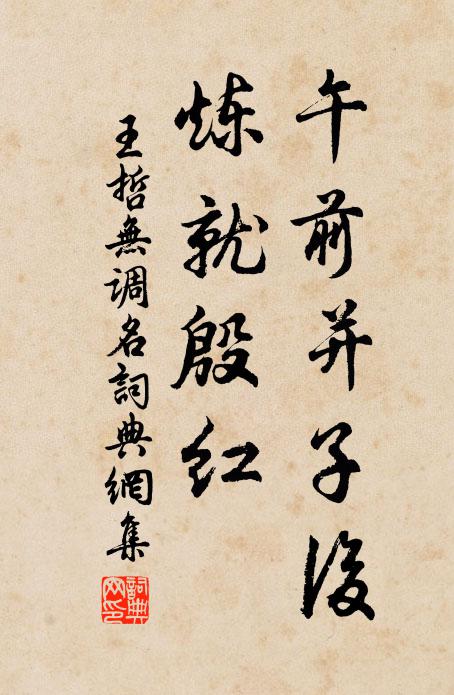 午前并子後
炼就殷红
王哲無调名詞典網集
詞典网印